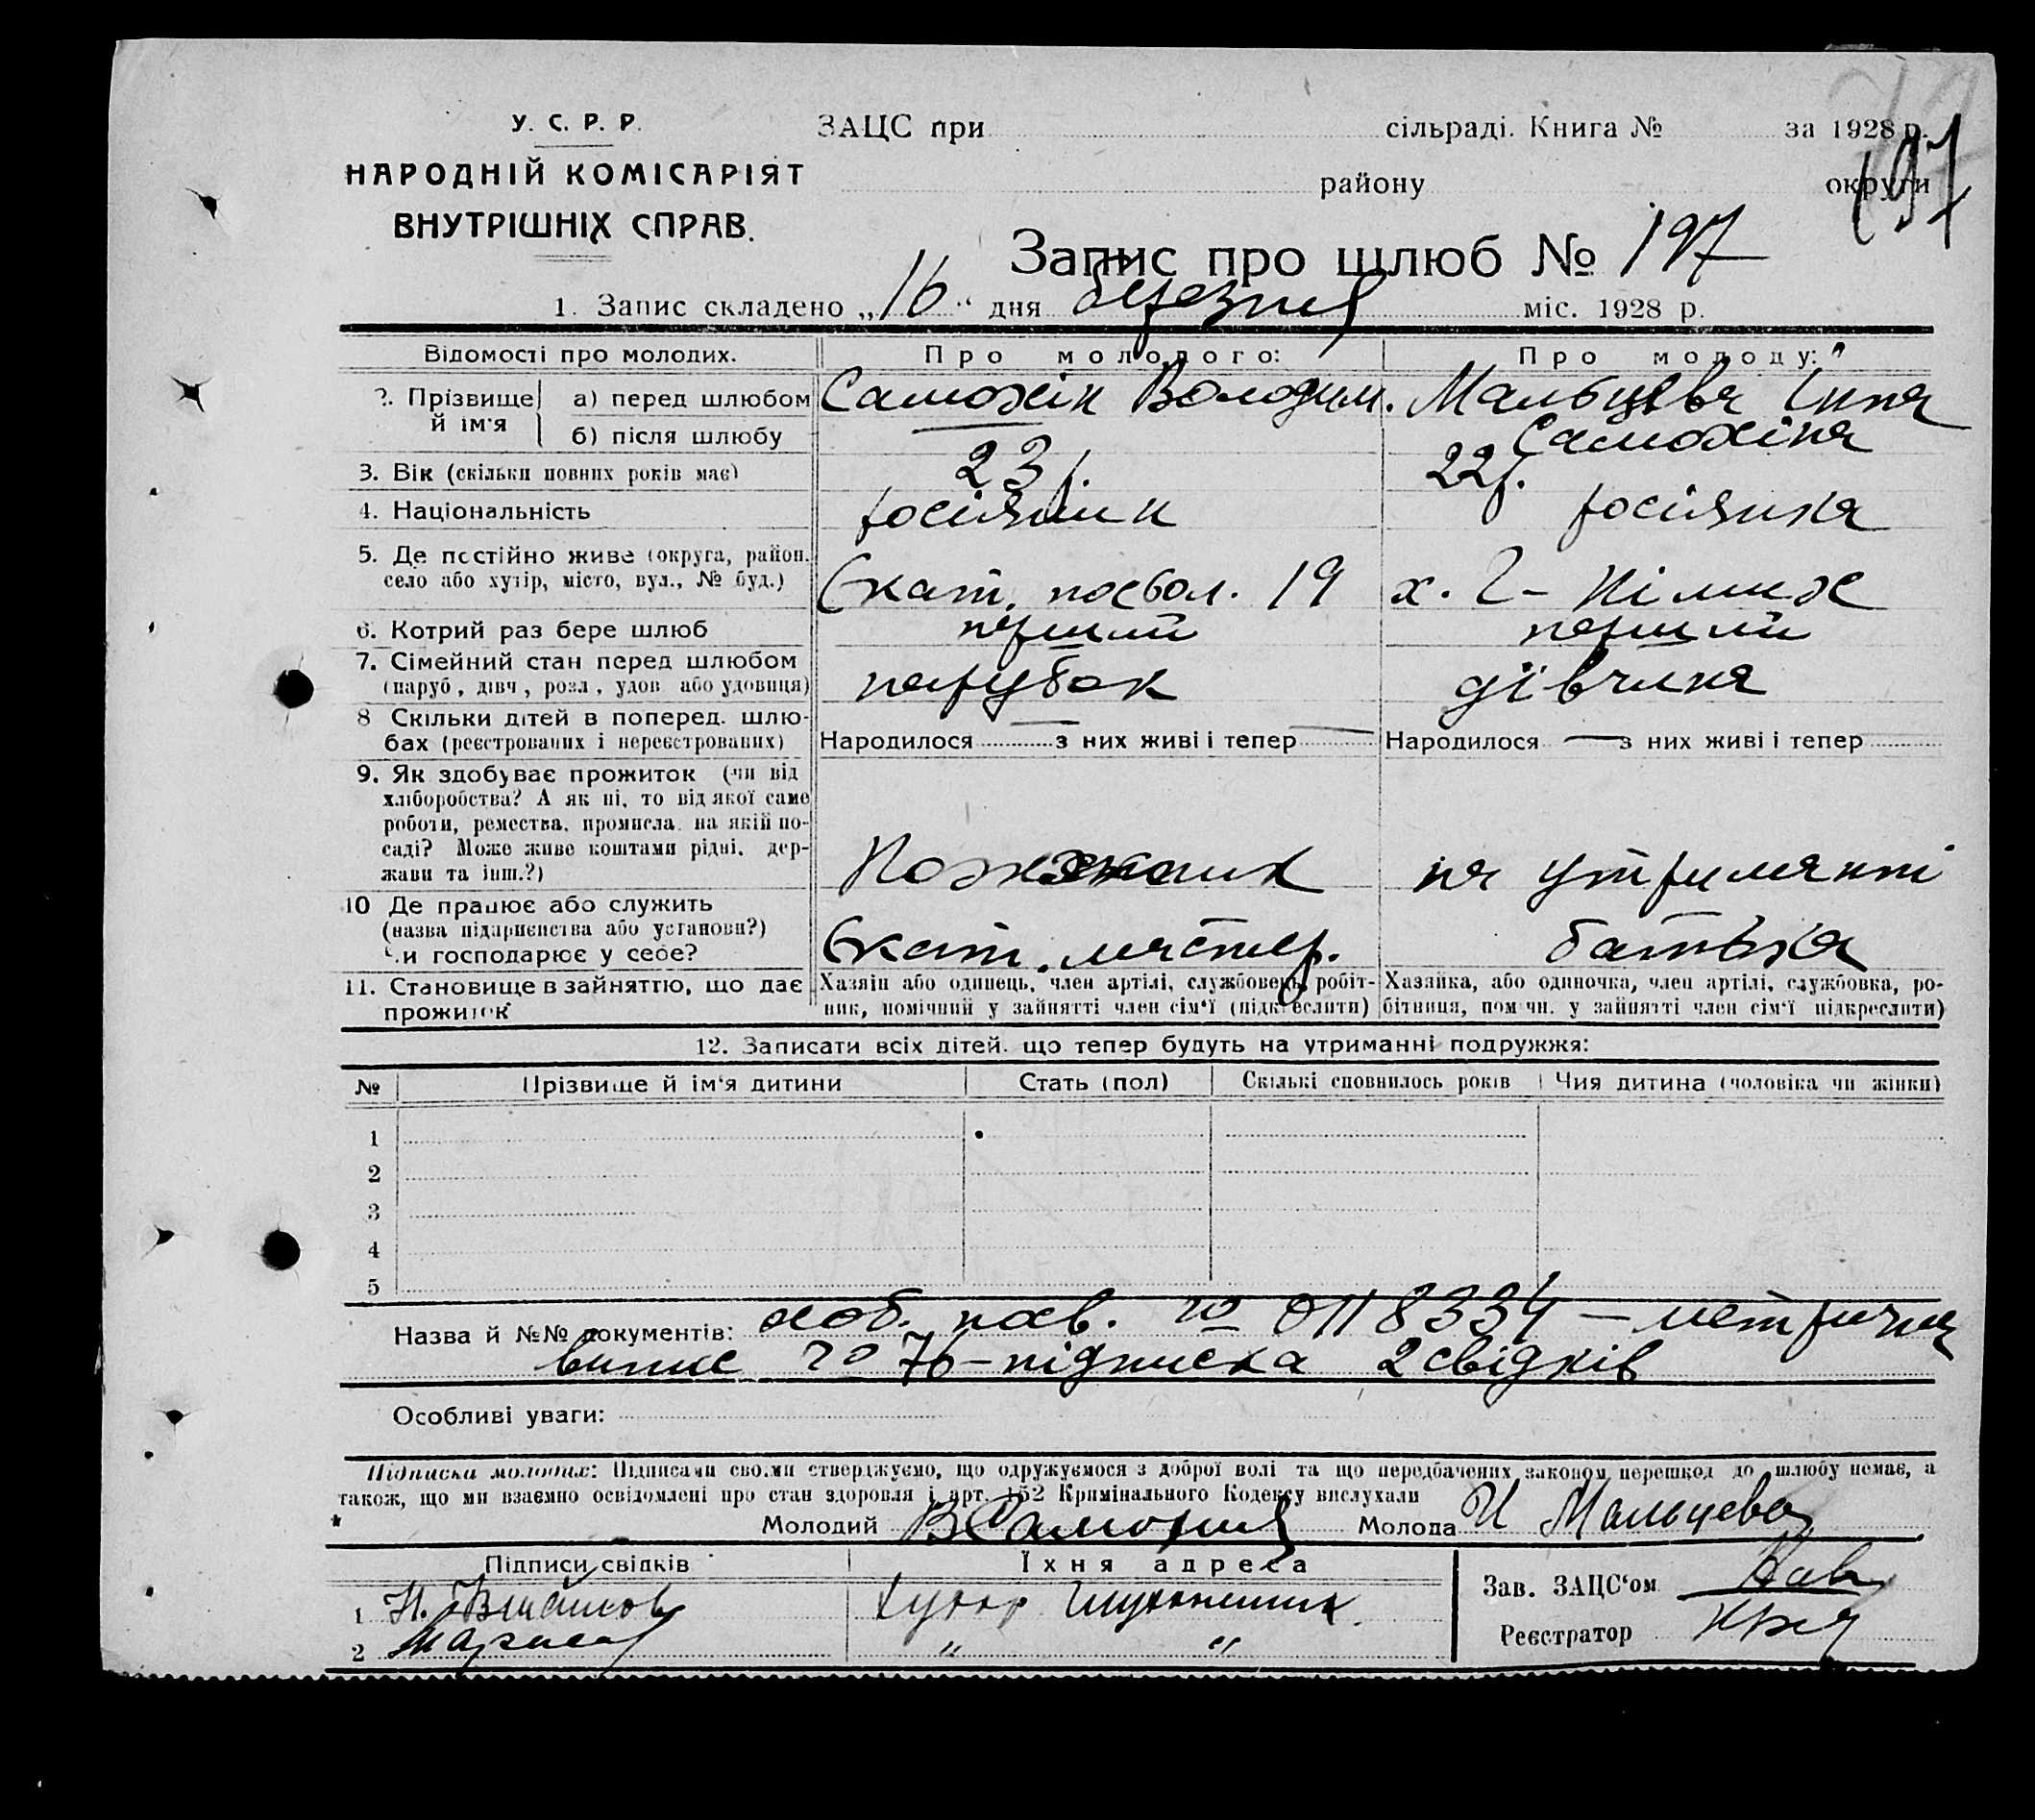 У. С. Р. Р.
НАРОДНІЙ КОМІСАРІЯТ
ВНУТРІШНІХ СПРАВ.
ЗАЦС при сільраді. Книга № за 1928 р.
району округи
197
Запис про шлюб № 197
1. Запис складено „16“ дня березня міс. 1928 р.
Відомості про молодих. Про молодого: Про молоду:
2. Прізвище й ім'я а) перед шлюбом Самохін Володим. Мальцева Інна
б) після шлюбу Самохіна
3. Вік (скільки повних років має) 23 р. 22 р.
4. Національність росіянин росіянка
5. Де постійно живе (округа, район, село або хутір, місто, вул., № буд.) Єкат. 19 х.
6. Котрий раз бере шлюб перший перший
7. Сімейний стан перед шлюбом (паруб., дівч., розл., удов. або удовиця) парубок дівчина
8 Скільки дітей в поперед. шлюбах (реєстрованих і нереєстрованих) Народилося — з них живі і тепер — Народилося — з них живі і тепер
9. Як здобуває прожиток (чи від хліборобства? А як ні, то від якої саме роботи, ремества, промисла, на якій посаді? Може живе коштами рідні, держави та інш.?) на утриманні
10 Де працює або служить (назва підприємства або установи?) Чи господарює у себе? Єкат. мастер. батька
11. Становище в зайняттю, що дає прожиток Хазяїн або одинець, член артілі, службовець, робітник, помічний у зайнятті член сім'ї (підкреслити) Хазяйка, або одиночка, член артілі, службовка, робітниця, помічн. у зайнятті член сім'ї підкреслити)
12. Записати всіх дітей, що тепер будуть на утриманні подружжя:
№ Прізвище й ім'я дитини Стать (пол) Скількі сповнилось років Чия дитина (чоловіка чи жінки)
1
2
3
4
5
Назва й №№ документів: посв. № 0118334 — метричний
випис № 76 – підписка 2 свідків
Особливі уваги:
Підписка молодих: Підписами своїми стверджуємо, що одружуємося з доброї волі та що передбачених законом перешкод до шлюбу немає, а
також, що ми взаємно освідомлені про стан здоровля і арт. 152 Кримінального Кодексу вислухали
Молодий ВСамохин Молода И Мальцева
Підписи свідків Їхня адреса
1 Н. Хутор
2 „ „
Зав. ЗАЦС'ом
Реєстратор